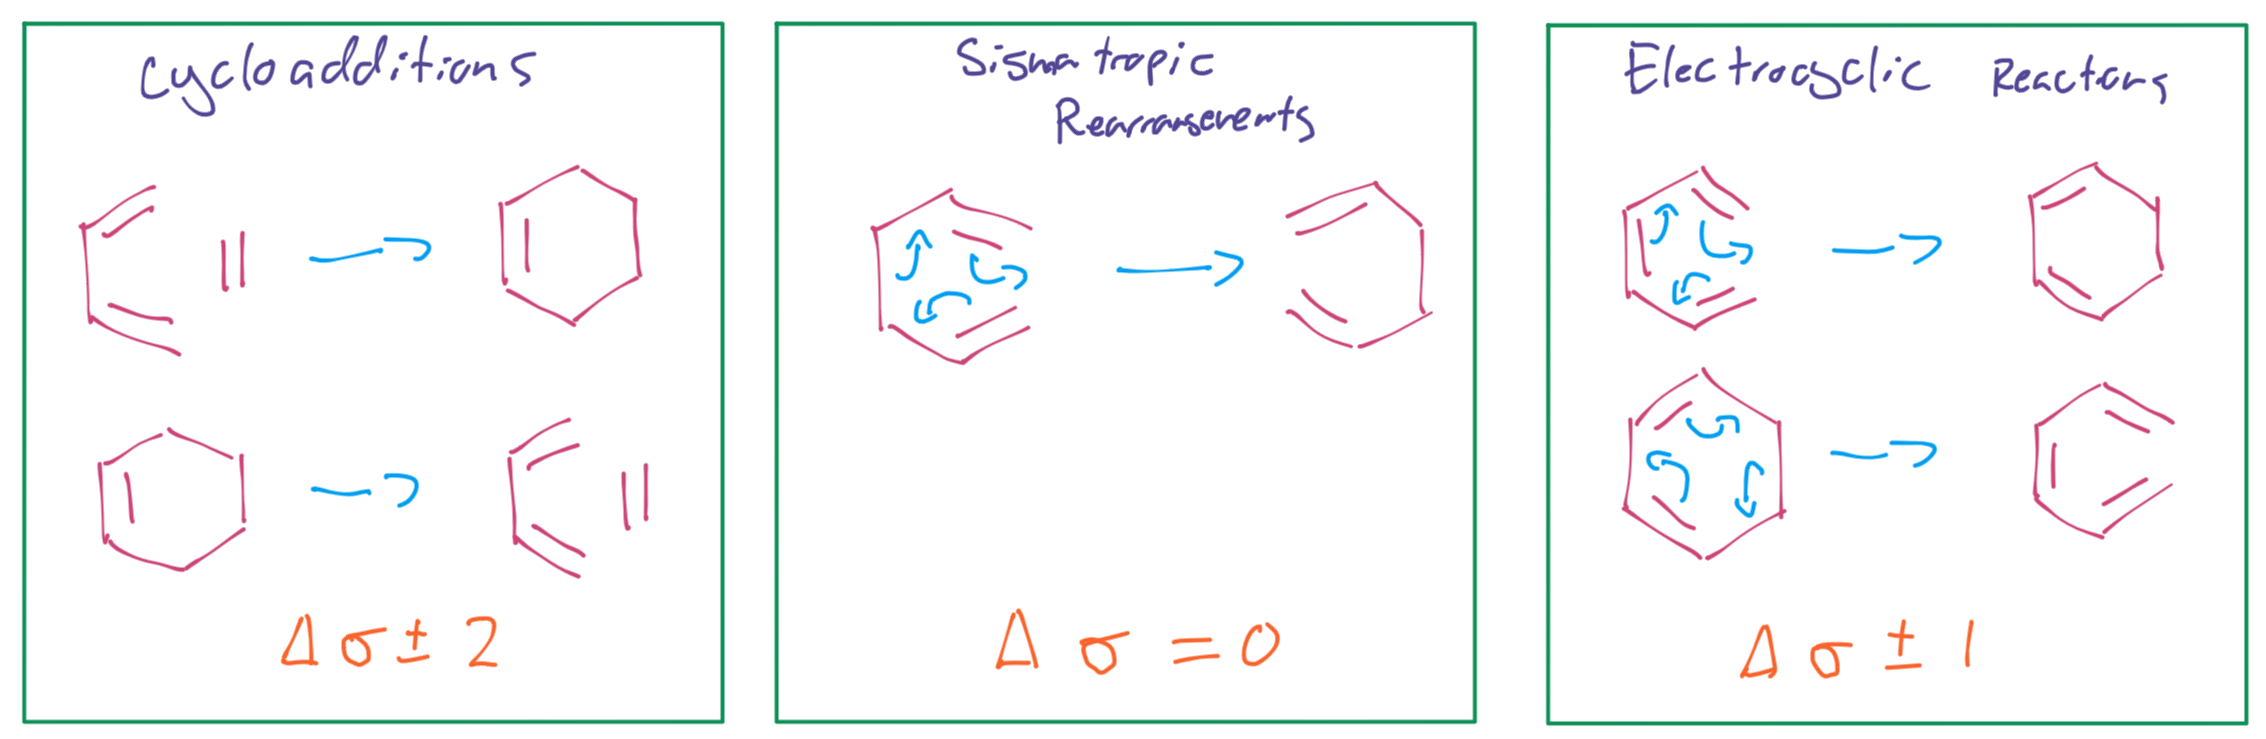 Cycloadditions
Δ σ ± 2
Sigmatropic
Rearrangements
Δ σ = 0
Electrocyclic Reactions
Δ σ ± 1